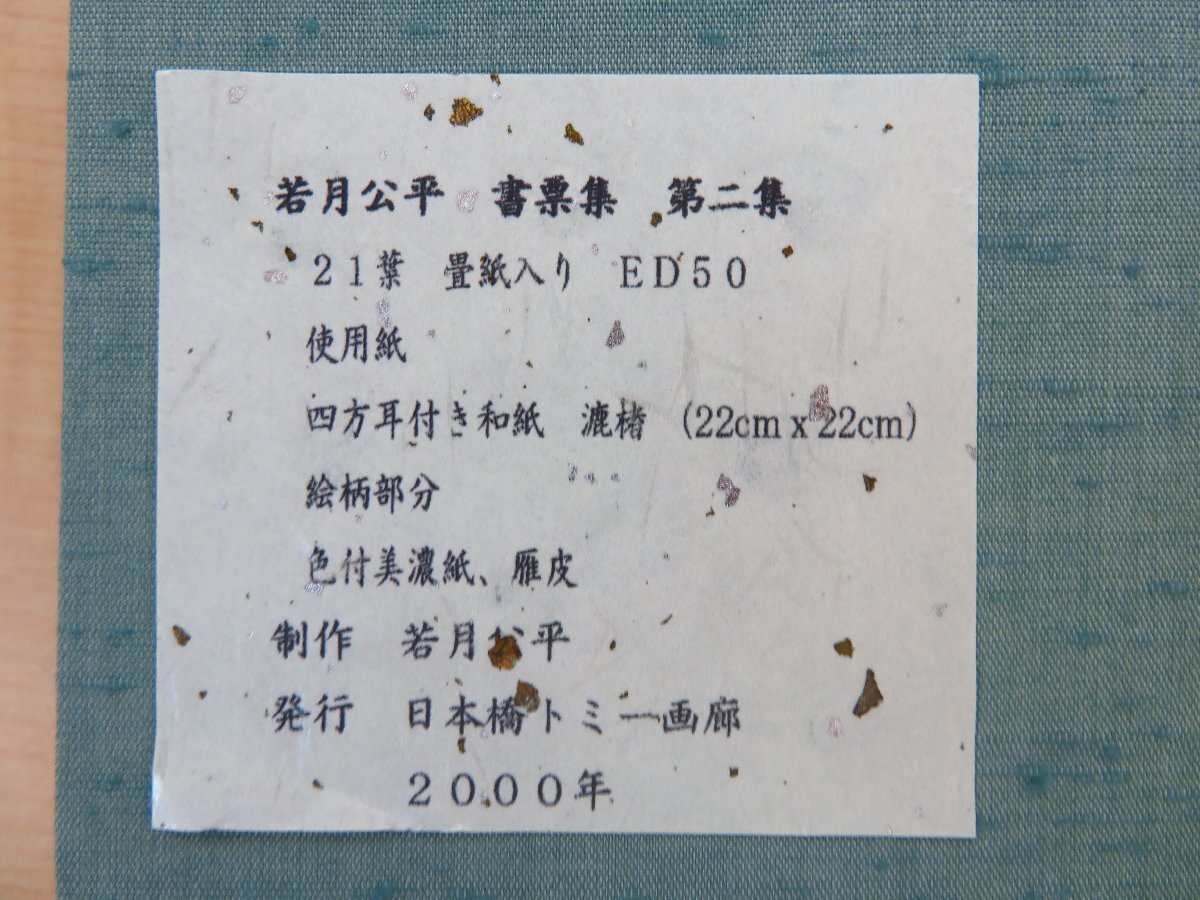 若月公平　書票集　第二集
２１葉　畳紙入り　ＥＤ５０
使用紙
四方耳付き和紙　漉楮　(22cm x 22cm)
絵柄部分
色付美濃紙、雁皮
制作　若月公平
発行　日本橋トミー画廊
２０００年